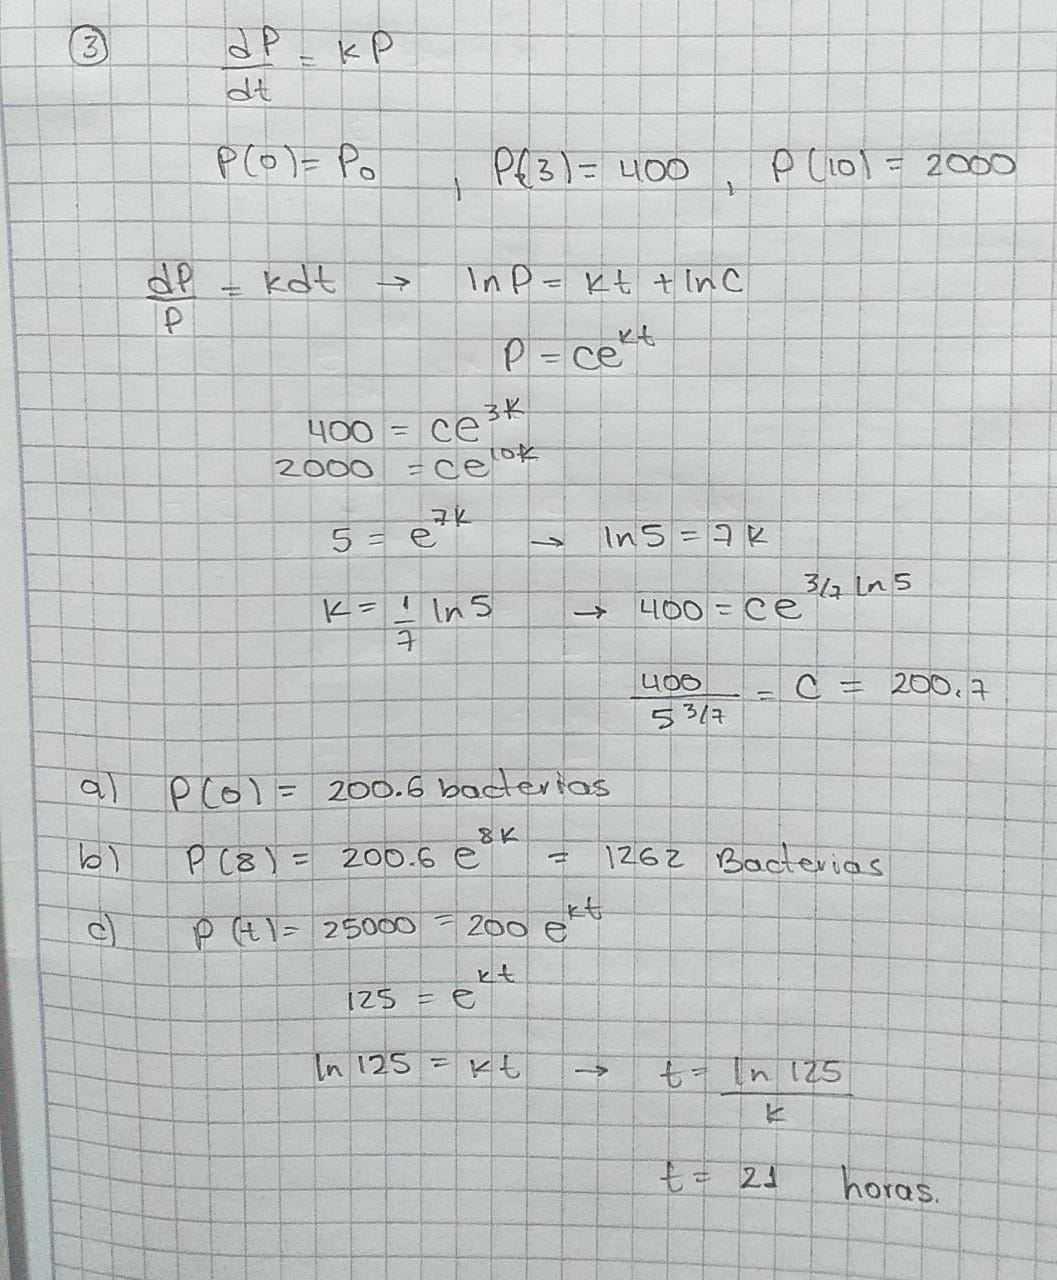 ③ dP/dt = kP
P(0) = P₀ , P(3) = 400 , P(10) = 2000
dP/P = kdt → ln P = kt + ln C
P = ce^{kt}
400 = ce^{3k}
2000 = ce^{10k}
5 = e^{7k} → ln 5 = 7k
k = 1/7 ln 5 → 400 = ce^{3/7 ln 5}
400/5^{3/7} = C = 200.7
a) P(0) = 200.6 bacterias
b) P(8) = 200.6 e^{8k} = 1262 Bacterias
c) P(t) = 25000 = 200 e^{kt}
125 = e^{kt}
ln 125 = kt → t = ln 125/k
t = 21 horas.